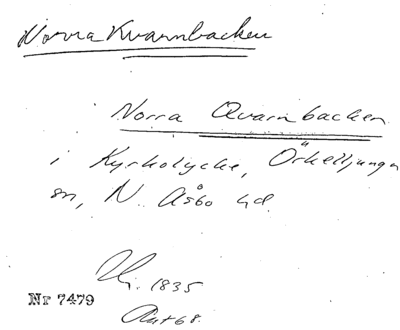 Norra Kvarnbacken
Norra Qvarnbacken
i Kyrkolycke, Örkelljunga
sn, N. Åsbo hd.
1835
Nr 7479
Akt 68.